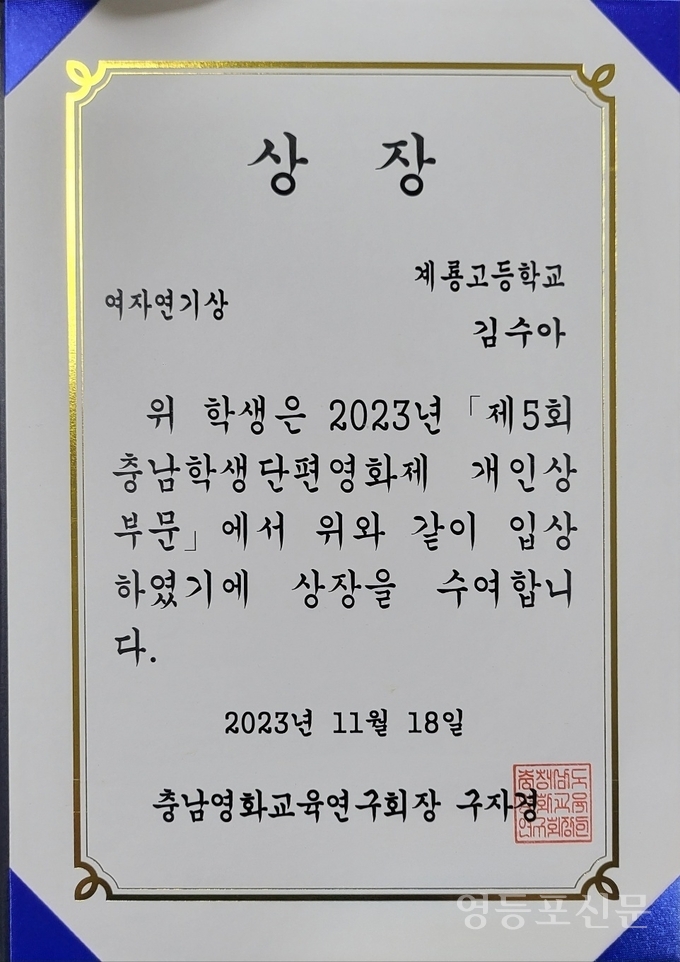 상 장
계룡고등학교
여자연기상
김수아
위 학생은 2023년 「제5회
충남학생단편영화제 개인상
부문」에서 위와 같이 입상
하였기에 상장을 수여합니
다.
2023년 11월 18일
충남영화교육연구회장 구자경
충청남도
영화교육
연구회장인
영등포신문